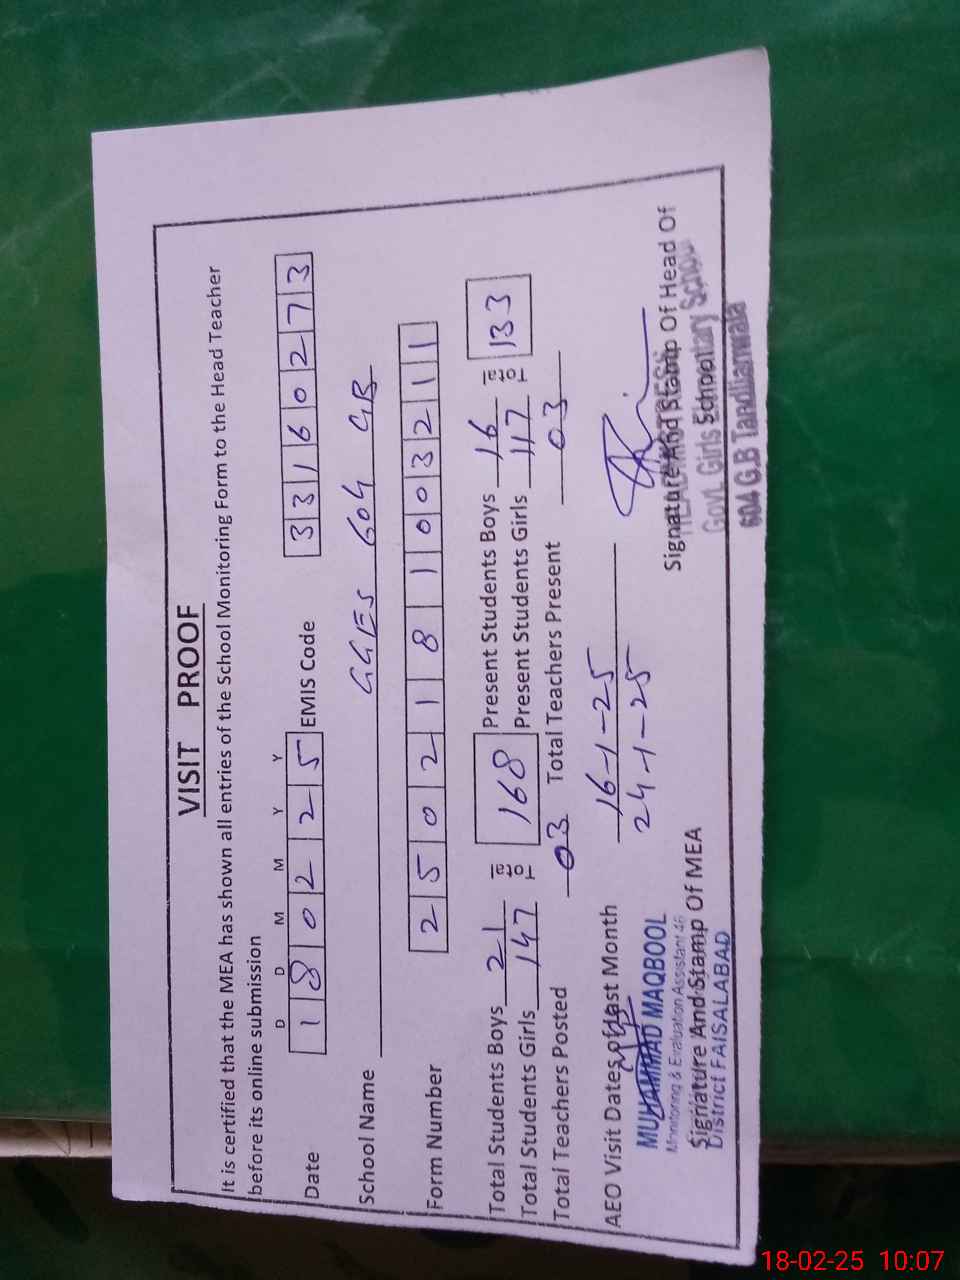 VISIT PROOF
It is certified that the MEA has shown all entries of the School Monitoring Form to the Head Teacher
before its online submission
D D M M Y Y
Date 1 8 0 2 2 5 EMIS Code 3 3 1 6 0 2 7 3
School Name GGES 604 GB
Form Number 2 5 0 2 1 8 1 0 0 3 2 1 1
Total Students Boys 21 Total 168 Present Students Boys 16 Total 133
Total Students Girls 147 Present Students Girls 117
Total Teachers Posted 03 Total Teachers Present 03
AEO Visit Dates of last Month 16-1-25
24-1-25
MUHAMMAD MAQBOOL
Monitoring & Evaluation Assistant 46
Signature And Stamp Of MEA
District FAISALABAD
Signature And Stamp Of Head Of
School
HEADMISTRESS
Govt. Girls Elementary School
604 G.B Tandlianwala
18-02-25 10:07